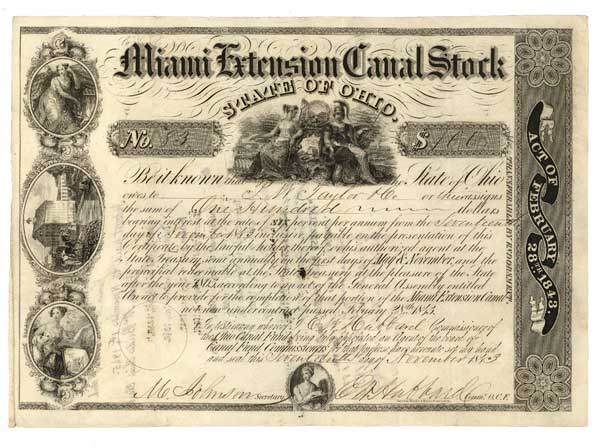 Miami Extension Canal Stock
STATE OF OHIO.
No. 53
$ 100
Be it known that the State of Ohio
owes to Taylor & Co or assigns
the sum of One Hundred dollars
bearing interest at the rate of SIX per cent per annum from the Seventeenth
day of payable on the presentation of this
Certificate by the lawful holder thereof or his authorized agent at the
State Treasury semi annually on the first days of May & November, and the
principal redeemable at the State Treasury at the pleasure of the State
after the year according to an act of the General Assembly entitled
An act to provide for the completion of that portion of the Miami Extension Canal
not now under contract passed February 28th 1843.
In testimony whereof I Hubbard Commissioner of
the Ohio Canal Fund being duly appointed an Agent of the board of
Canal Fund Commissioners for that purpose have hereunto set my hand
and seal this Seventeenth day November 1843
M. Johnson Secretary
Hubbard Comr. O.C.F.
TRANSFERABLE BY ENDORSEMENT.
ACT OF FEBRUARY 28TH 1843.